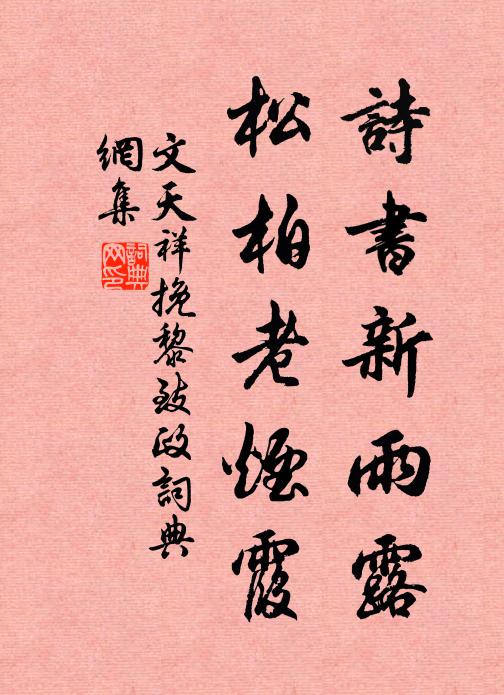 詩書新雨露
松柏老煙霞
文天祥挽黎致政詞典
網集
詞典
网印